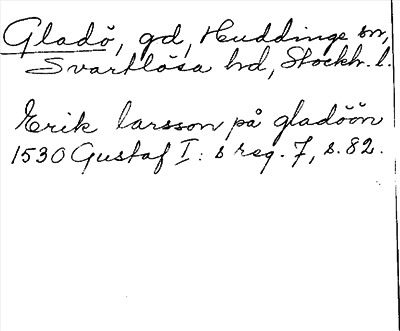 Gladö, gd, Huddinge sn,
Svartlösa hd, Stockh. l.
Erik larsson på gladöön
1530 Gustaf I: s reg. 7, s. 82.